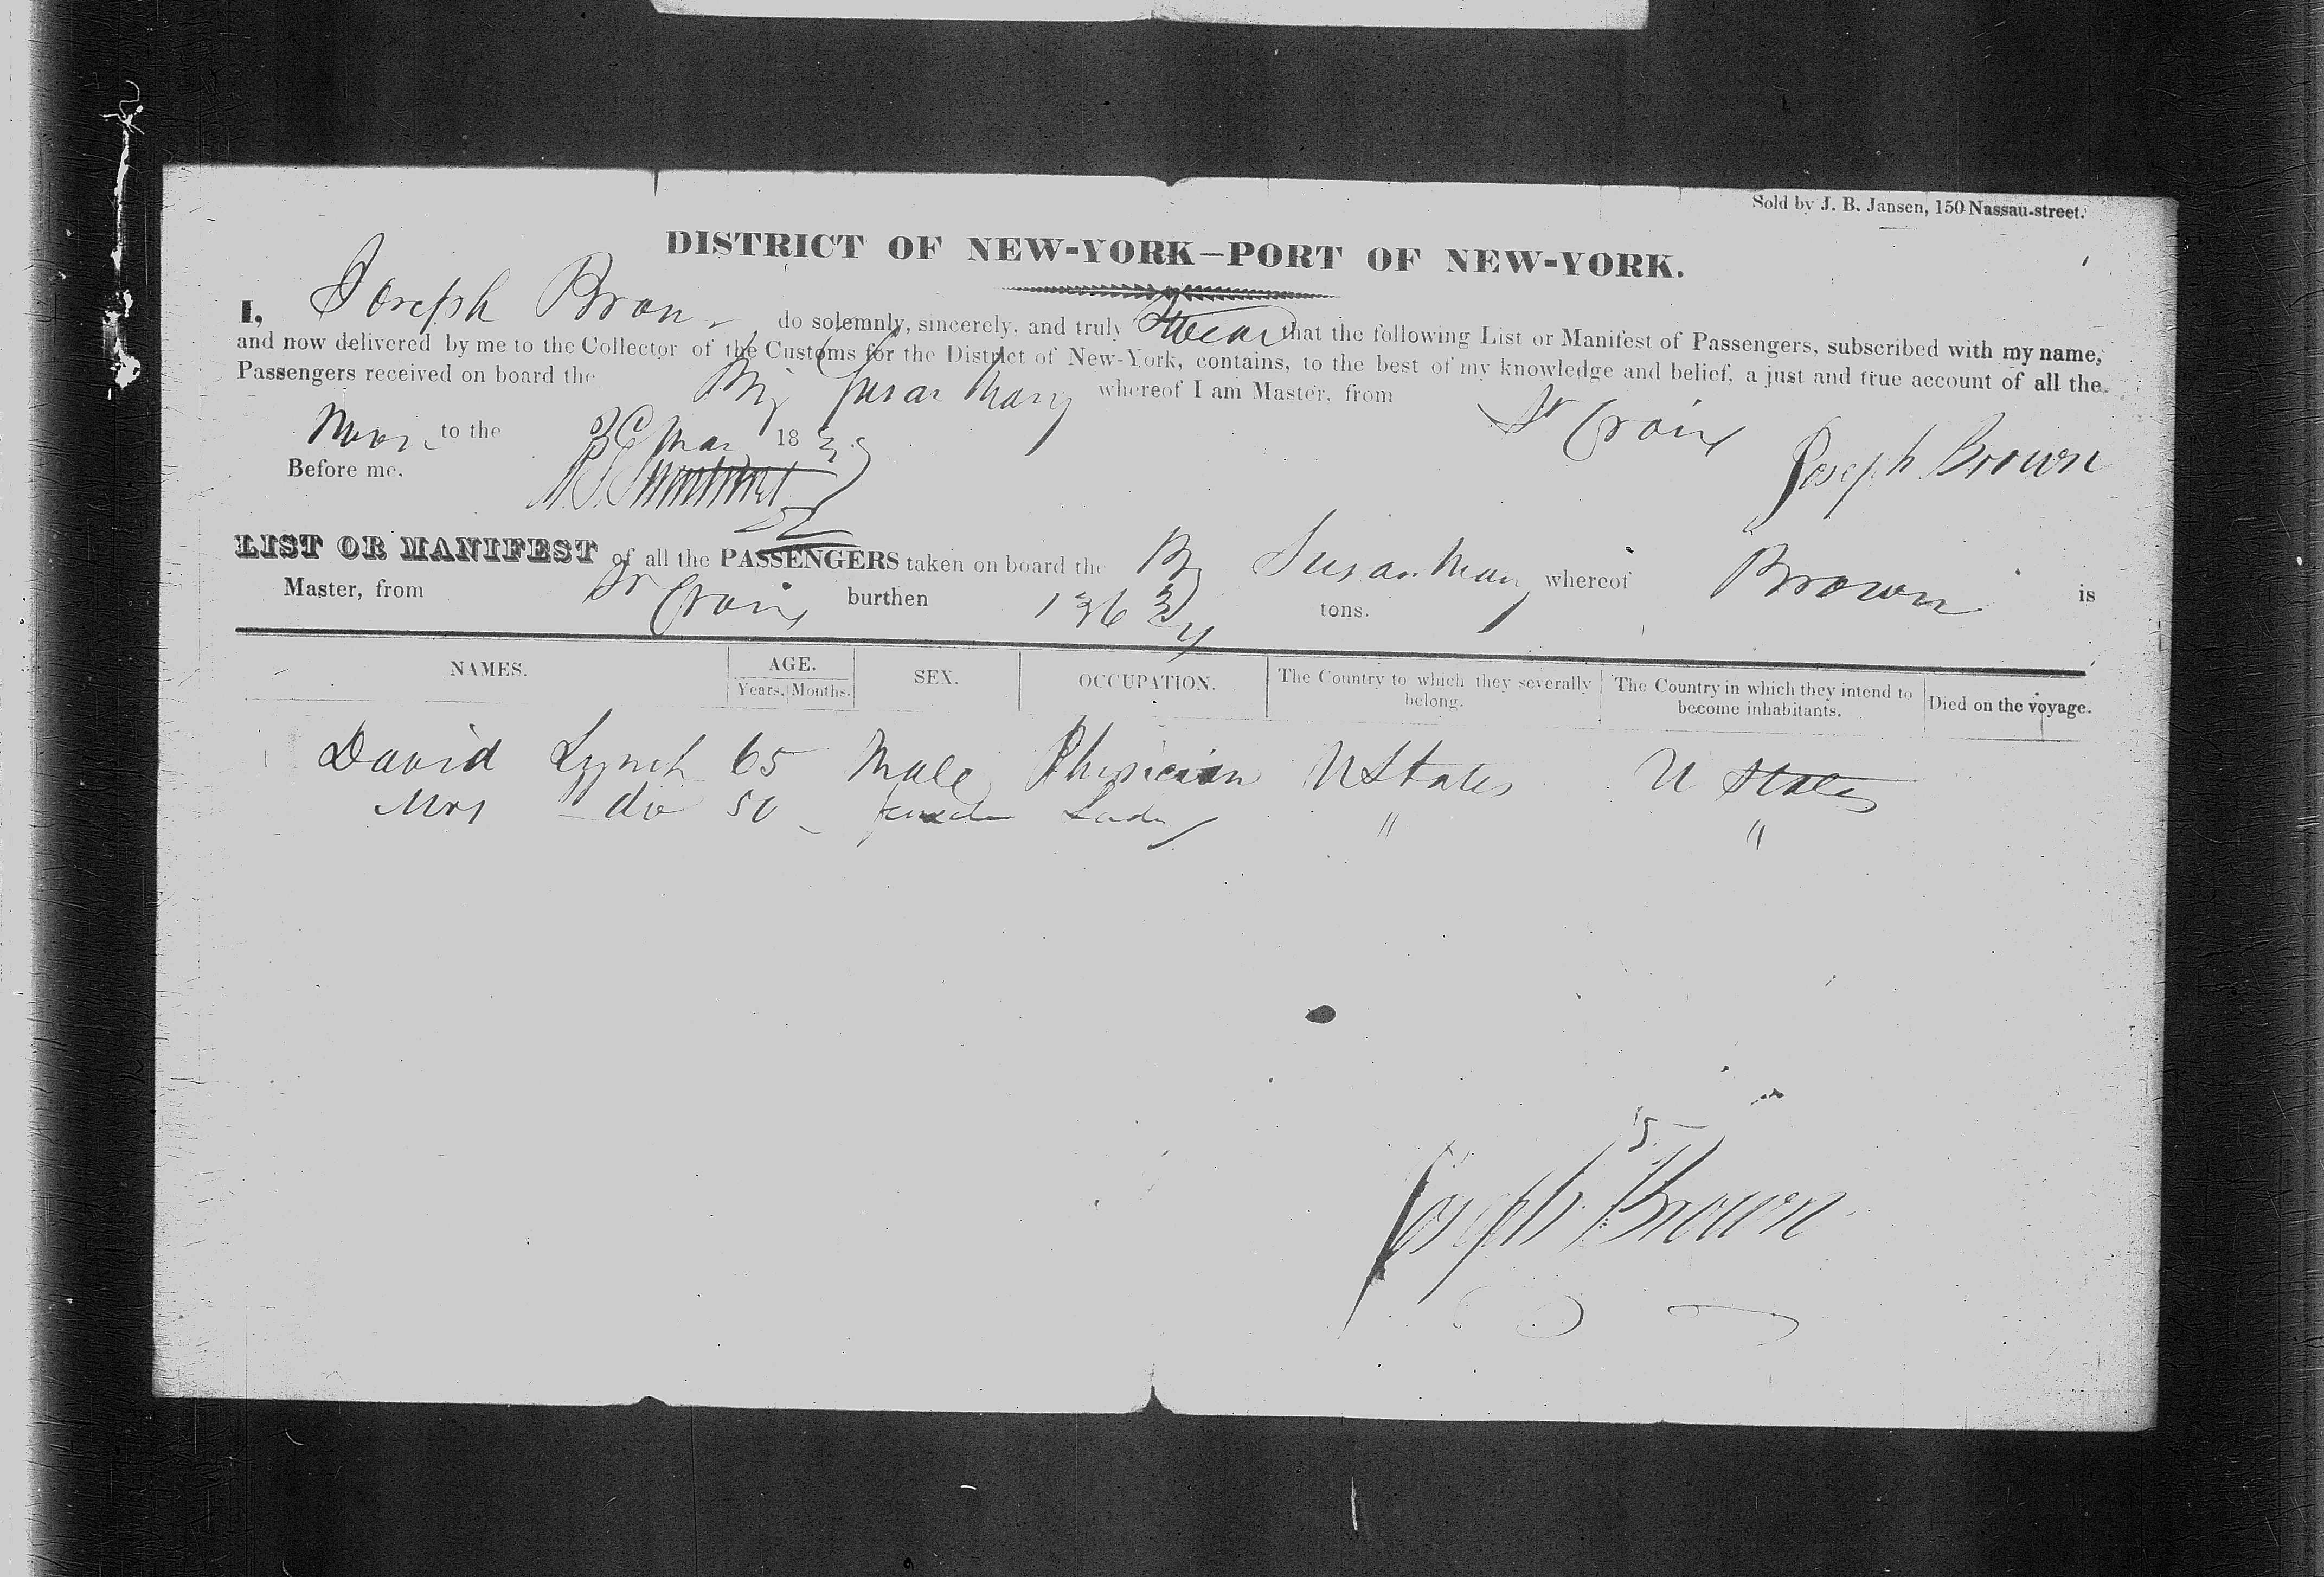 Sold by J. B. Jansen, 150 Nassau-street.
DISTRICT OF NEW-YORK—PORT OF NEW-YORK.
I, Joseph Brown do solemnly, sincerely, and truly Swear that the following List or Manifest of Passengers, subscribed with my name,
and now delivered by me to the Collector of the Customs for the District of New-York, contains, to the best of my knowledge and belief, a just and true account of all the
Passengers received on board the Brig Susan Mary whereof I am Master, from St Croix
to the May 18
Joseph Brown
Before me.
LIST OR MANIFEST of all the PASSENGERS taken on board the Brig Susan Mary whereof Brown is
Master, from St Croix burthen 136 tons.
NAMES. AGE. SEX. OCCUPATION. The Country to which they severally belong. The Country in which they intend to become inhabitants. Died on the voyage.
Years. Months.
David Lynch 65 Male Physician U States U States
Mrs do 50 female Lady " "
Joseph Brown